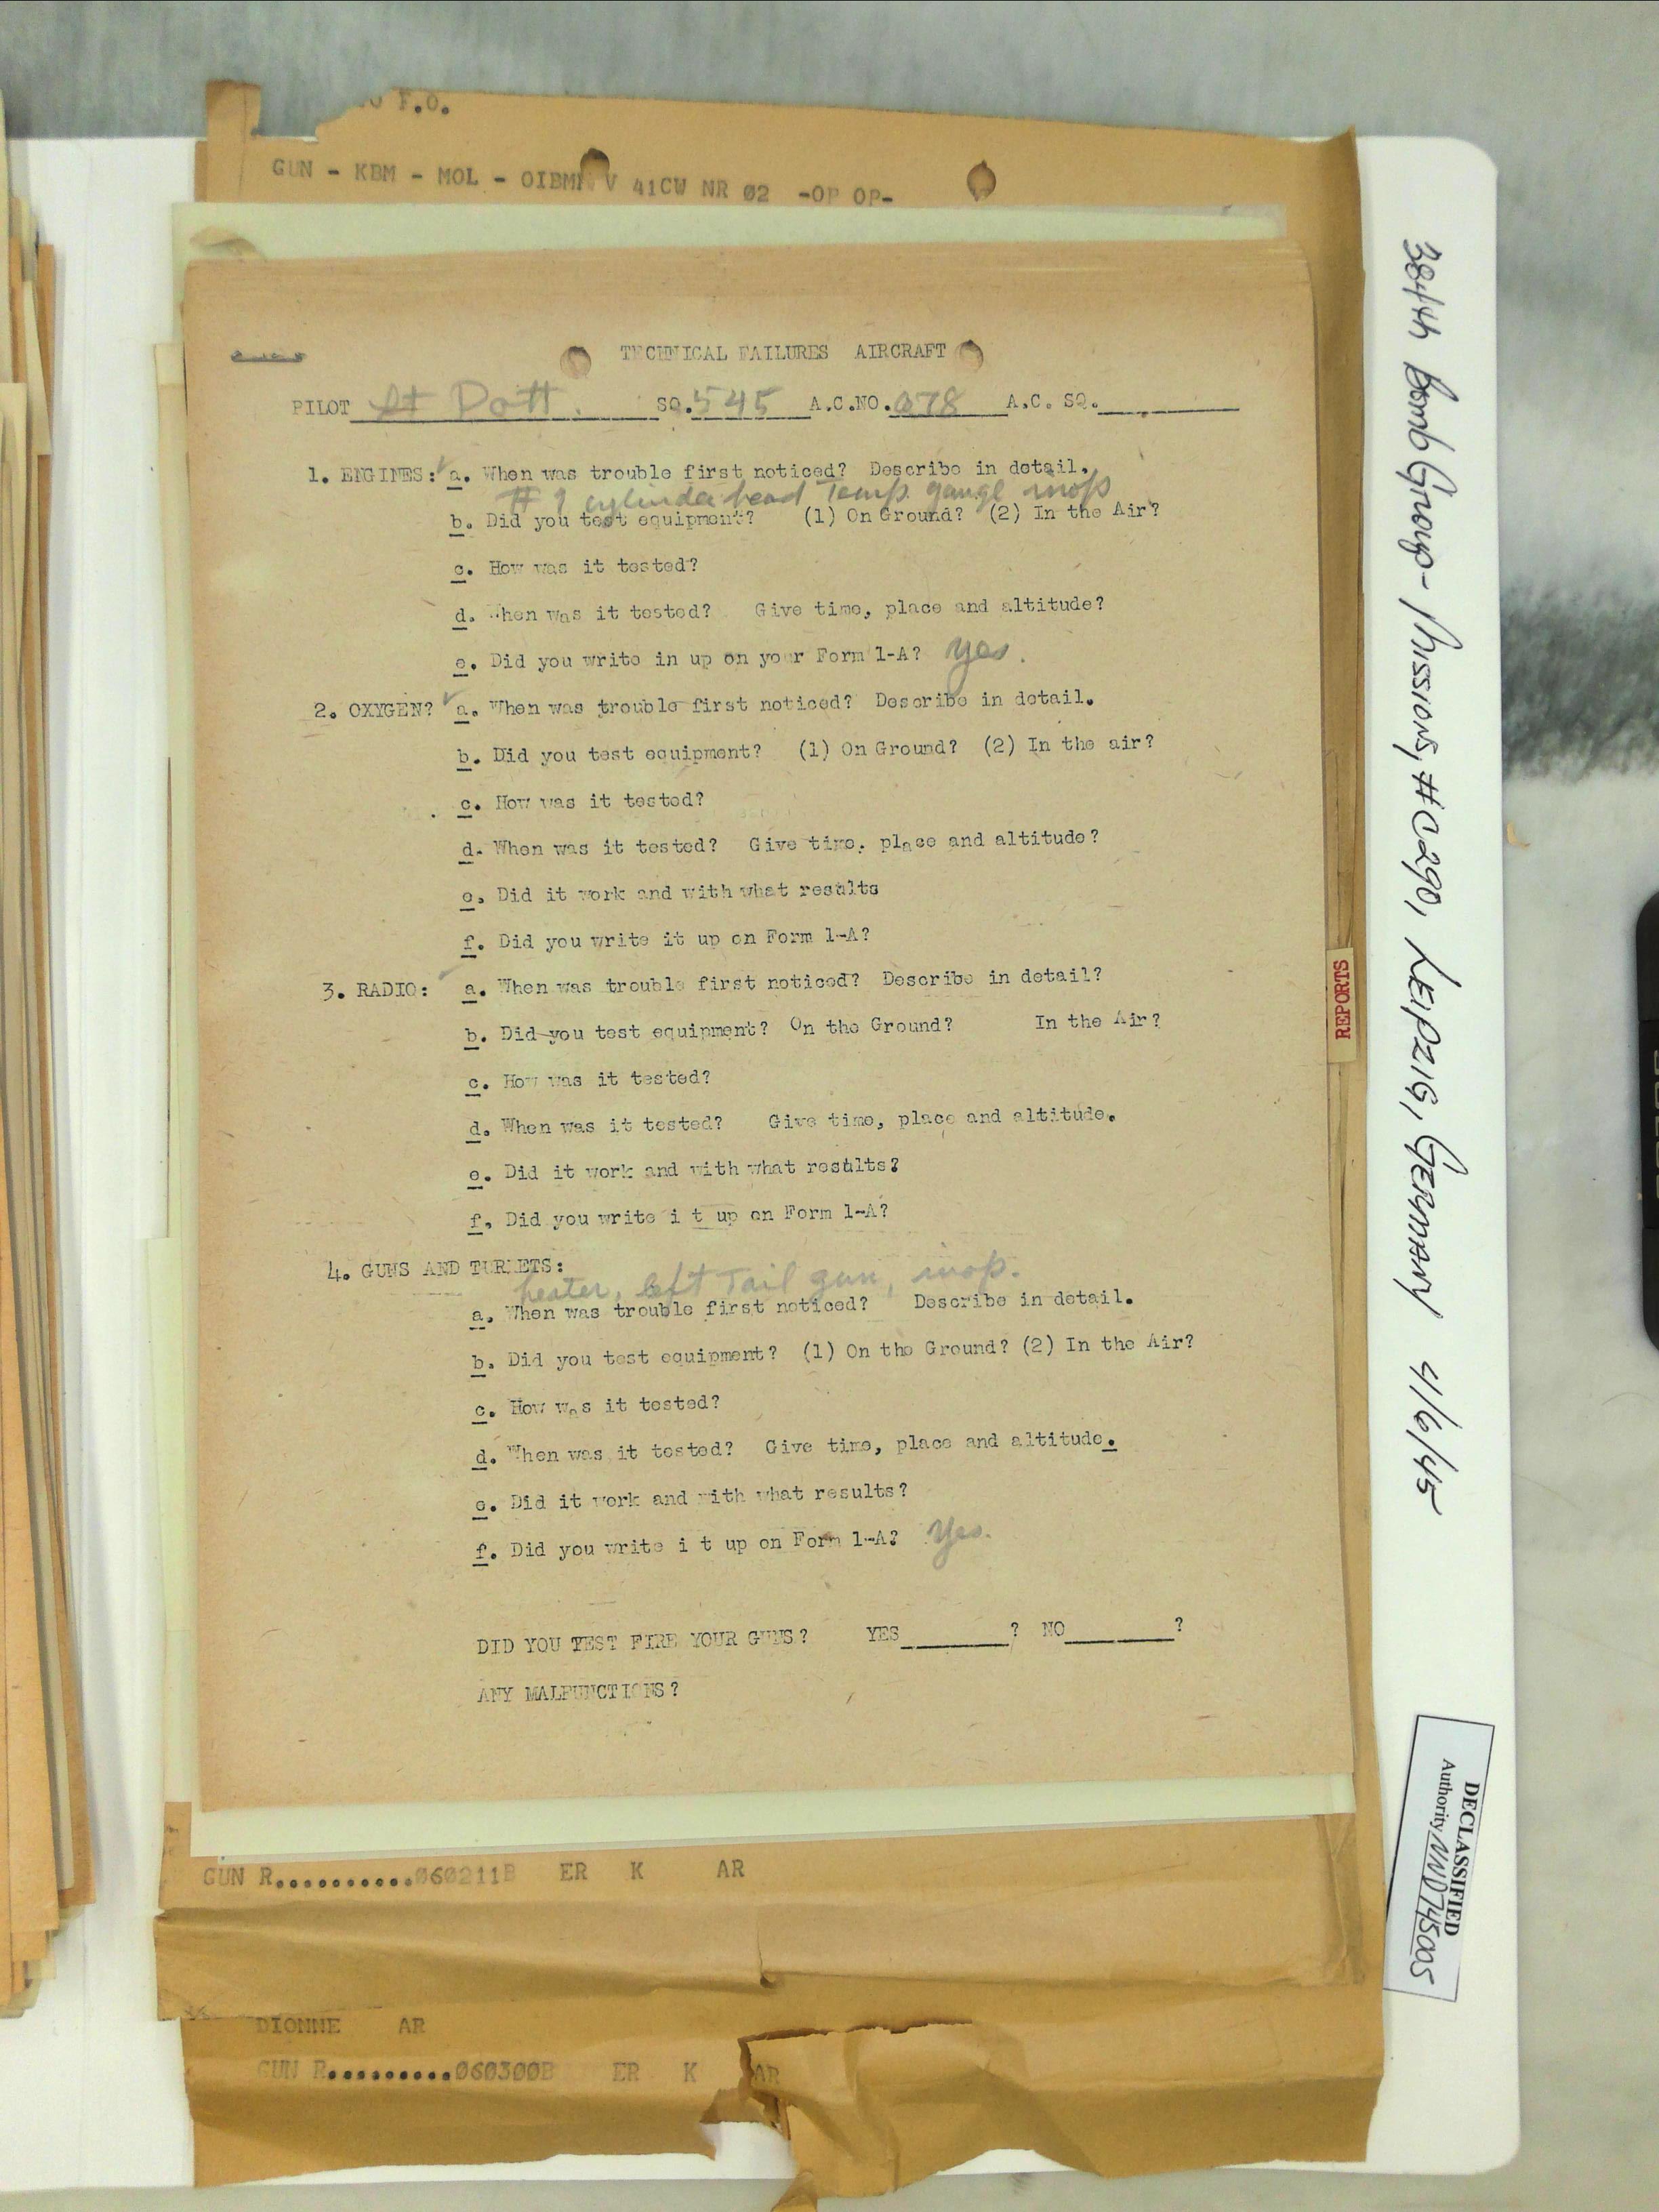 F.O.
GUN - KBM - MOL - OIBMN V 41CW NR 02 -OP OP-
TECHNICAL FAILURES AIRCRAFT
PILOT Lt Dott. SQ. 545 A.C.NO. 078 A.C. SQ.
1. ENGINES: a. When was trouble first noticed? Describe in detail.
# 1 cylinder head Temp. gauge inop
b. Did you test equipment? (1) On Ground? (2) In the Air?
c. How was it tested?
d. When was it tested? Give time, place and altitude?
e. Did you write in up on your Form 1-A? yes.
2. OXYGEN? a. When was trouble first noticed? Describe in detail.
b. Did you test equipment? (1) On Ground? (2) In the air?
c. How was it tested?
d. When was it tested? Give time. place and altitude?
e. Did it work and with what results
f. Did you write it up on Form 1-A?
3. RADIO: a. When was trouble first noticed? Describe in detail?
b. Did you test equipment? On the Ground? In the Air?
c. How was it tested?
d. When was it tested? Give time, place and altitude.
e. Did it work and with what results?
f. Did you write i t up on Form 1-A?
4. GUNS AND TURRETS:
heater, left Tail gun, inop.
a. When was trouble first noticed? Describe in detail.
b. Did you test equipment? (1) On the Ground? (2) In the Air?
c. How was it tested?
d. When was it tested? Give time, place and altitude.
e. Did it work and with what results?
f. Did you write i t up on Form 1-A? Yes.
DID YOU TEST FIRE YOUR GUNS? YES ? NO ?
ANY MALFUNCTIONS?
GUN R..........060211B ER K AR
DIONNE AR
GUN R..........060300B ER K AR
REPORTS
384th Bomb Group - Missions, #C290, LEIPZIG, GERMANY 4/6/45
DECLASSIFIED
Authority NND745005